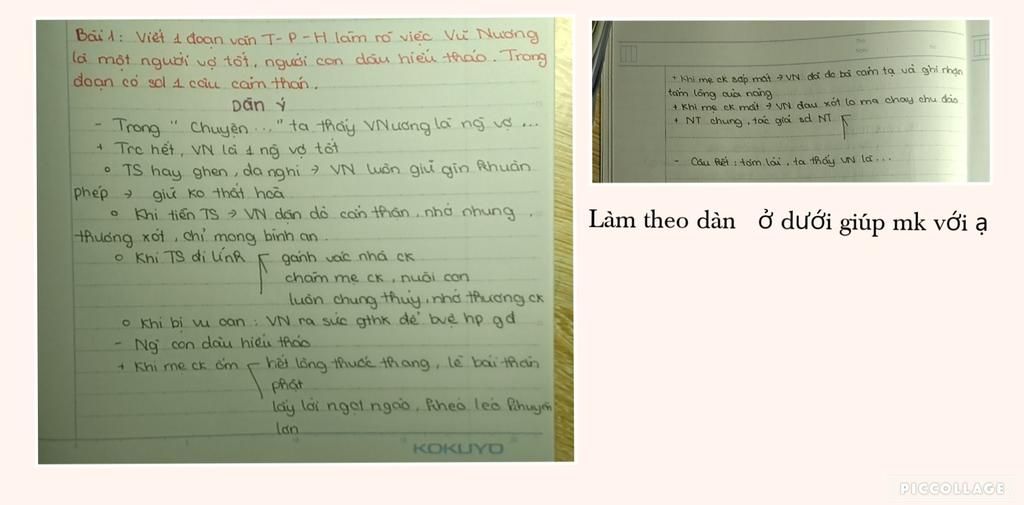 Bài 1: Viết 1 đoạn văn T-P-H làm rõ việc Vũ Nương
là một người vợ tốt, người con dâu hiếu thảo. Trong
đoạn có sd 1 câu cảm thán.
Dàn ý
- Trong "Chuyện..." ta thấy VNương là ng vợ ...
+ Trc hết, VN là 1 ng vợ tốt
o TS hay ghen, đa nghi → VN luôn giữ gìn khuôn
phép → giữ ko thất hoà
o Khi tiễn TS → VN dặn dò cẩn thận, nhớ nhung,
thương xót, chỉ mong bình an.
o Khi TS đi lính gánh vác nhà ck
chăm mẹ ck, nuôi con
luôn chung thủy, nhớ thương ck
o Khi bị vu oan: VN ra sức gthk để bvệ hp gđ
- Ng con dâu hiếu thảo
+ Khi mẹ ck ốm hết lòng thuốc thang, lễ bái thần
phật
lấy lời ngọt ngào, khéo léo khuyên
lơn
KOKUYO
+ Khi mẹ ck sắp mất → VN đc bà cảm tạ và ghi nhận
tấm lòng của nàng
+ Khi mẹ ck mất → VN đau xót lo ma chay chu đáo
+ NT chung, tác giả sd NT
- Câu kết: tóm lại, ta thấy VN là...
Làm theo dàn ở dưới giúp mk với ạ
PICCOLLAGE